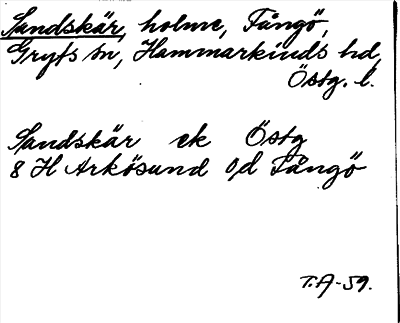 Sandskär, holme, Fångö,
Gryts sn, Hammarkinds hd,
Östg. l.
Sandskär ek Östg
8 H Arkösund o/d Fångö
T.A-59.